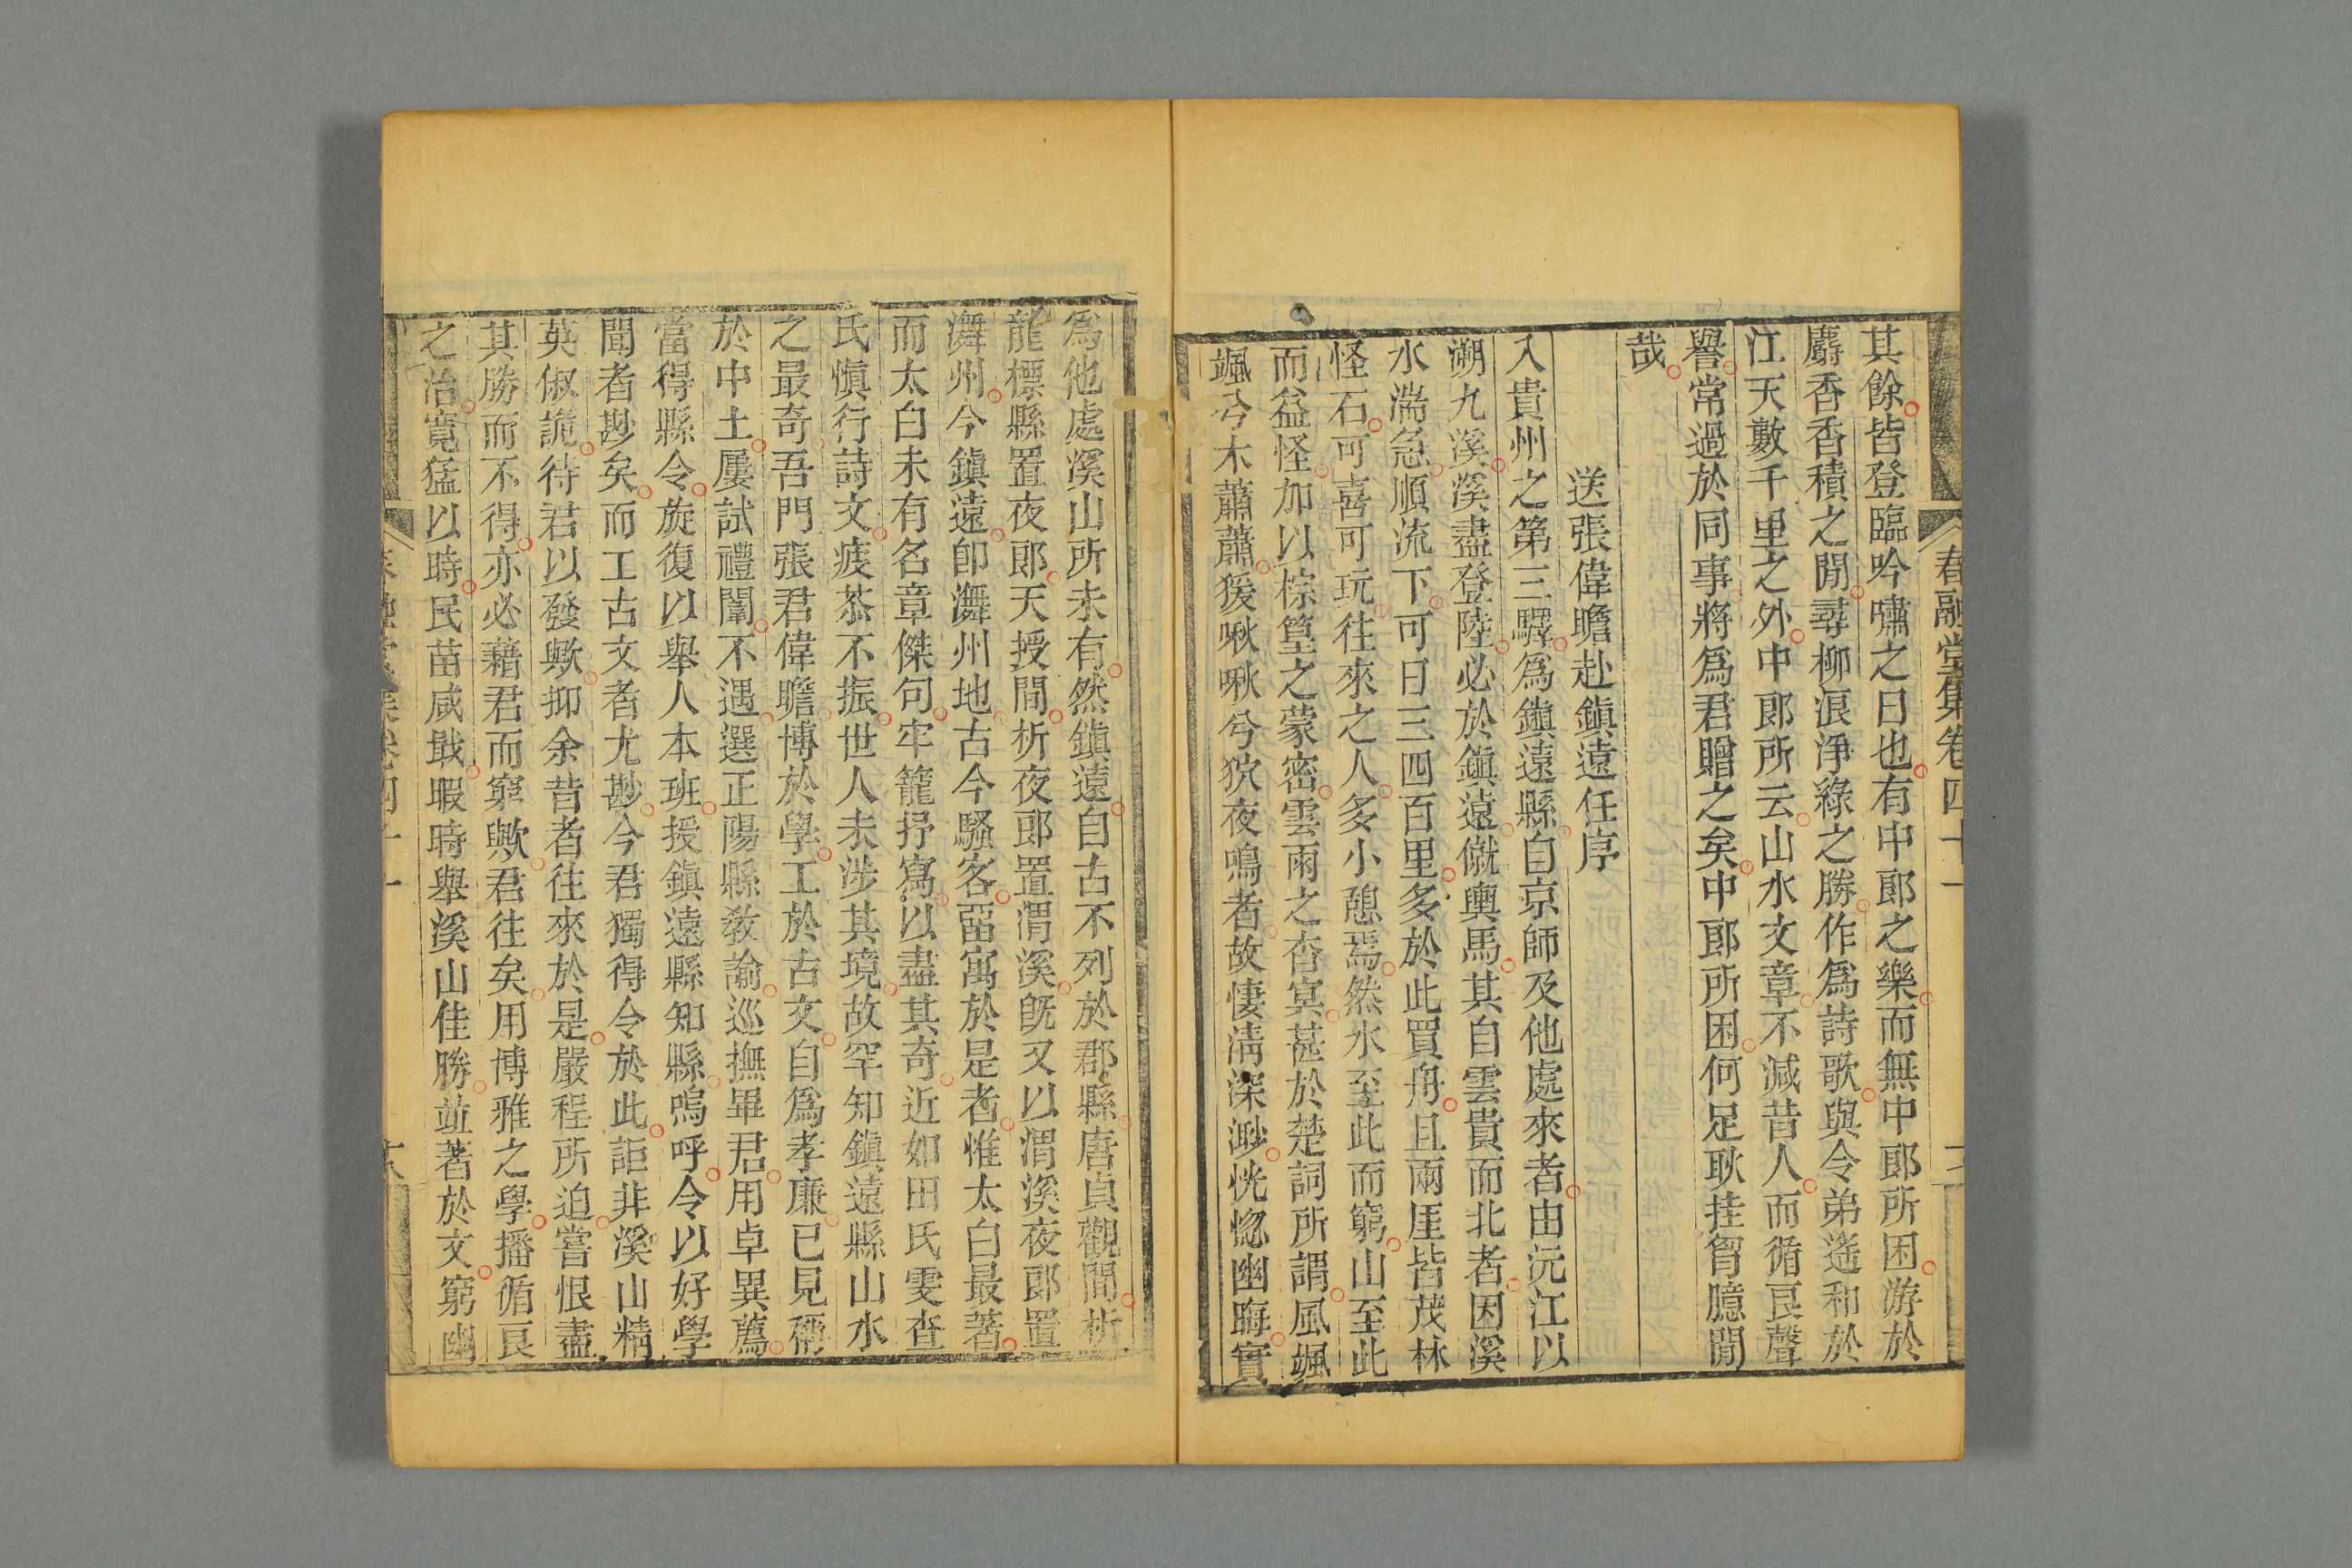 春融堂集卷四十一
其餘皆登臨吟嘯之日也有中郎之樂而無中郎所困游於
麝香香積之閒尋柳浪淨綠之勝作爲詩歌與令弟遙和於
江天數千里之外中郎所云山水文章不減昔人而循良聲
譽常過於同事將爲君贈之矣中郎所困何足耿挂胷臆閒
哉
送張偉瞻赴鎭遠任序
入貴州之第三驛爲鎭遠縣自京師及他處來者由沅江以
溯九溪溪盡登陸必於鎭遠僦輿馬其自雲貴而北者因溪
水湍急順流下可日三四百里多於此買舟且兩厓皆茂林
怪石可喜可玩往來之人多小憩焉然水至此而窮山至此
而益怪加以椶篁之蒙密雲雨之杳冥甚於楚詞所謂風颯
颯兮木蕭蕭猨啾啾兮狖夜鳴者故悽淸深渺恍惚幽晦實
爲他處溪山所未有然鎭遠自古不列於郡縣唐貞觀間析
龍標縣置夜郎天授間析夜郎置渭溪旣又以渭溪夜郎置
㵲州今鎭遠卽㵲州地古今騷客畱寓於是者惟太白最著
而太白未有名章傑句牢籠抒寫以盡其奇近如田氏雯查
氏愼行詩文疲苶不振世人未涉其境故罕知鎭遠縣山水
之最奇吾門張君偉瞻博於學工於古文自爲孝廉已見稱
於中土屢試禮闈不遇選正陽縣敎諭巡撫畢君用卓異薦
當得縣令旋復以舉人本班授鎭遠縣知縣嗚呼令以好學
聞者尟矣而工古文者尤尟今君獨得令於此詎非溪山精
英俶詭待君以發歟抑余昔者往來於是嚴程所迫嘗恨盡
其勝而不得亦必藉君而窮歟君往矣用博雅之學播循良
之治寬猛以時民苗咸戢暇時舉溪山佳勝竝著於文窮幽